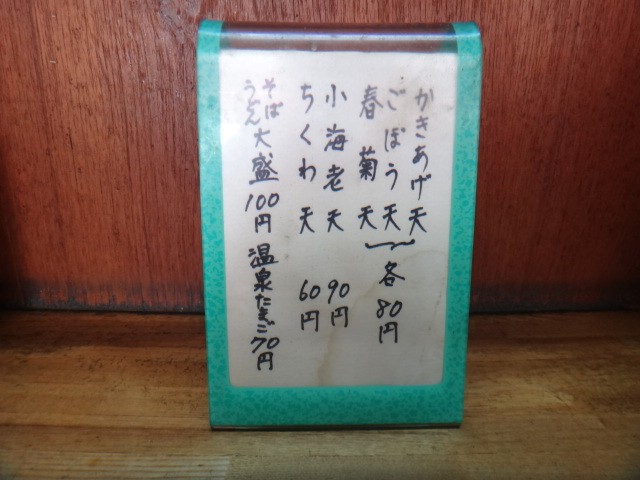 かきあげ天
ごぼう天
春菊天
各80円
小海老天 90円
ちくわ天 60円
そば
うどん大盛100円 温泉たまご70円